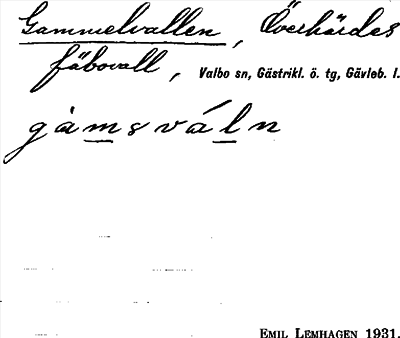 Gammelvallen, Överhärdes
fäbovall, Valbo sn, Gästrikl. ö. tg, Gävleb. l.
gàmsváln
EMIL LEMHAGEN 1931.